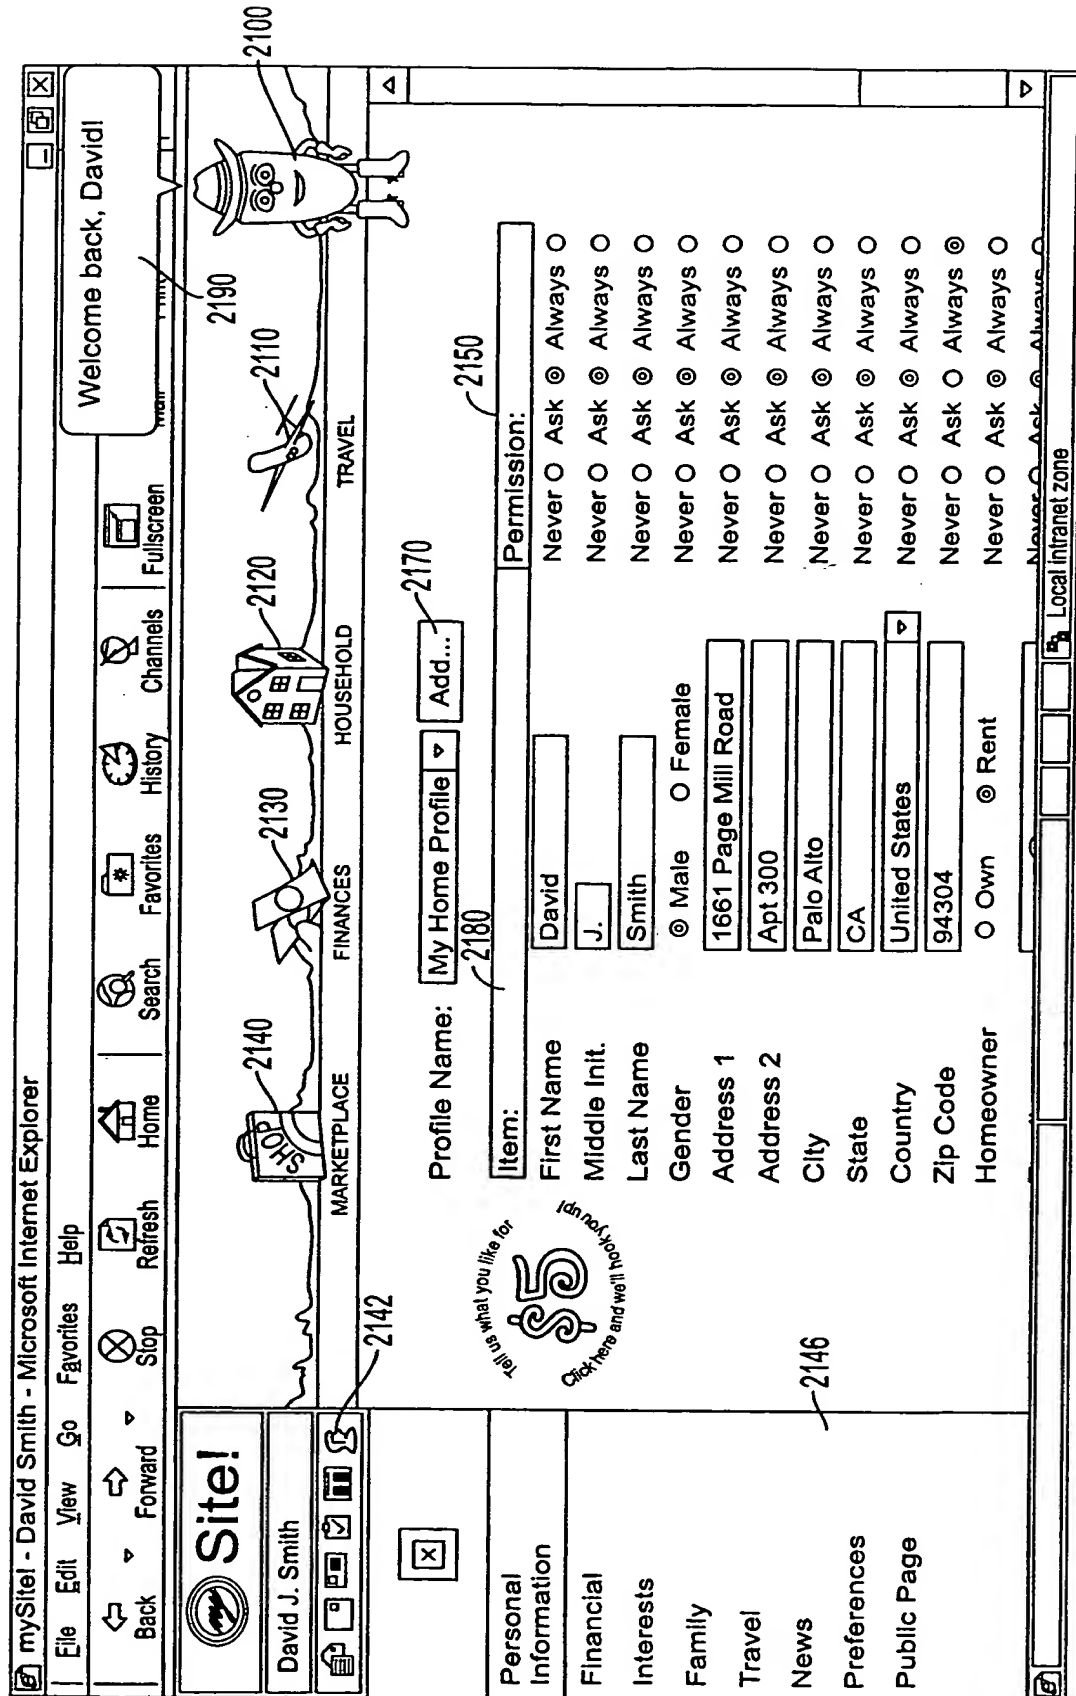 mySite! - David Smith - Microsoft Internet Explorer
File Edit View Go Favorites Help
Back Forward Stop Refresh Home Search Favorites History Channels Fullscreen Mail
Welcome back, David!
2190
2100
my Site!
David J. Smith
2142
SHOP
2140
2130
2120
2110
MARKETPLACE FINANCES HOUSEHOLD TRAVEL
Personal
Information
Financial
Interests
Family
Travel
News
Preferences
Public Page
2146
Tell us what you like for
$5
Click here and we'll hook you up!
Profile Name: My Home Profile Add...
2170
2180
2150
Item: Permission:
First Name David Never Ask Always
Middle Init. J. Never Ask Always
Last Name Smith Never Ask Always
Gender Male Female Never Ask Always
Address 1 1661 Page Mill Road Never Ask Always
Address 2 Apt 300 Never Ask Always
City Palo Alto Never Ask Always
State CA Never Ask Always
Country United States Never Ask Always
Zip Code 94304 Never Ask Always
Homeowner Own Rent Never Ask Always
Never Ask Always
Local intranet zone